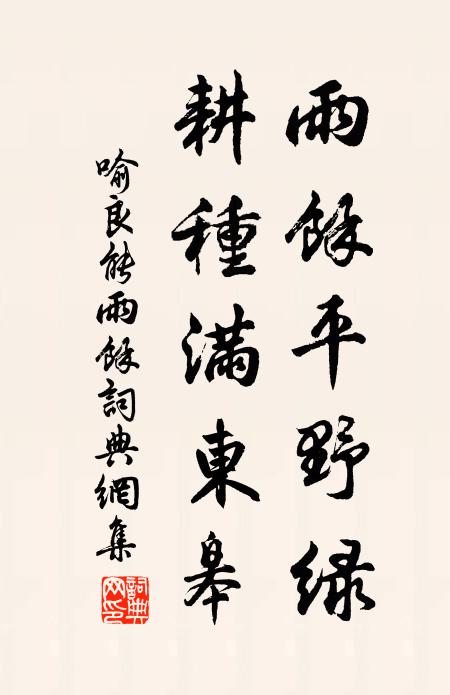 雨餘平野緑
耕種滿東皋
喻良能雨餘詞典網集
詞典網印